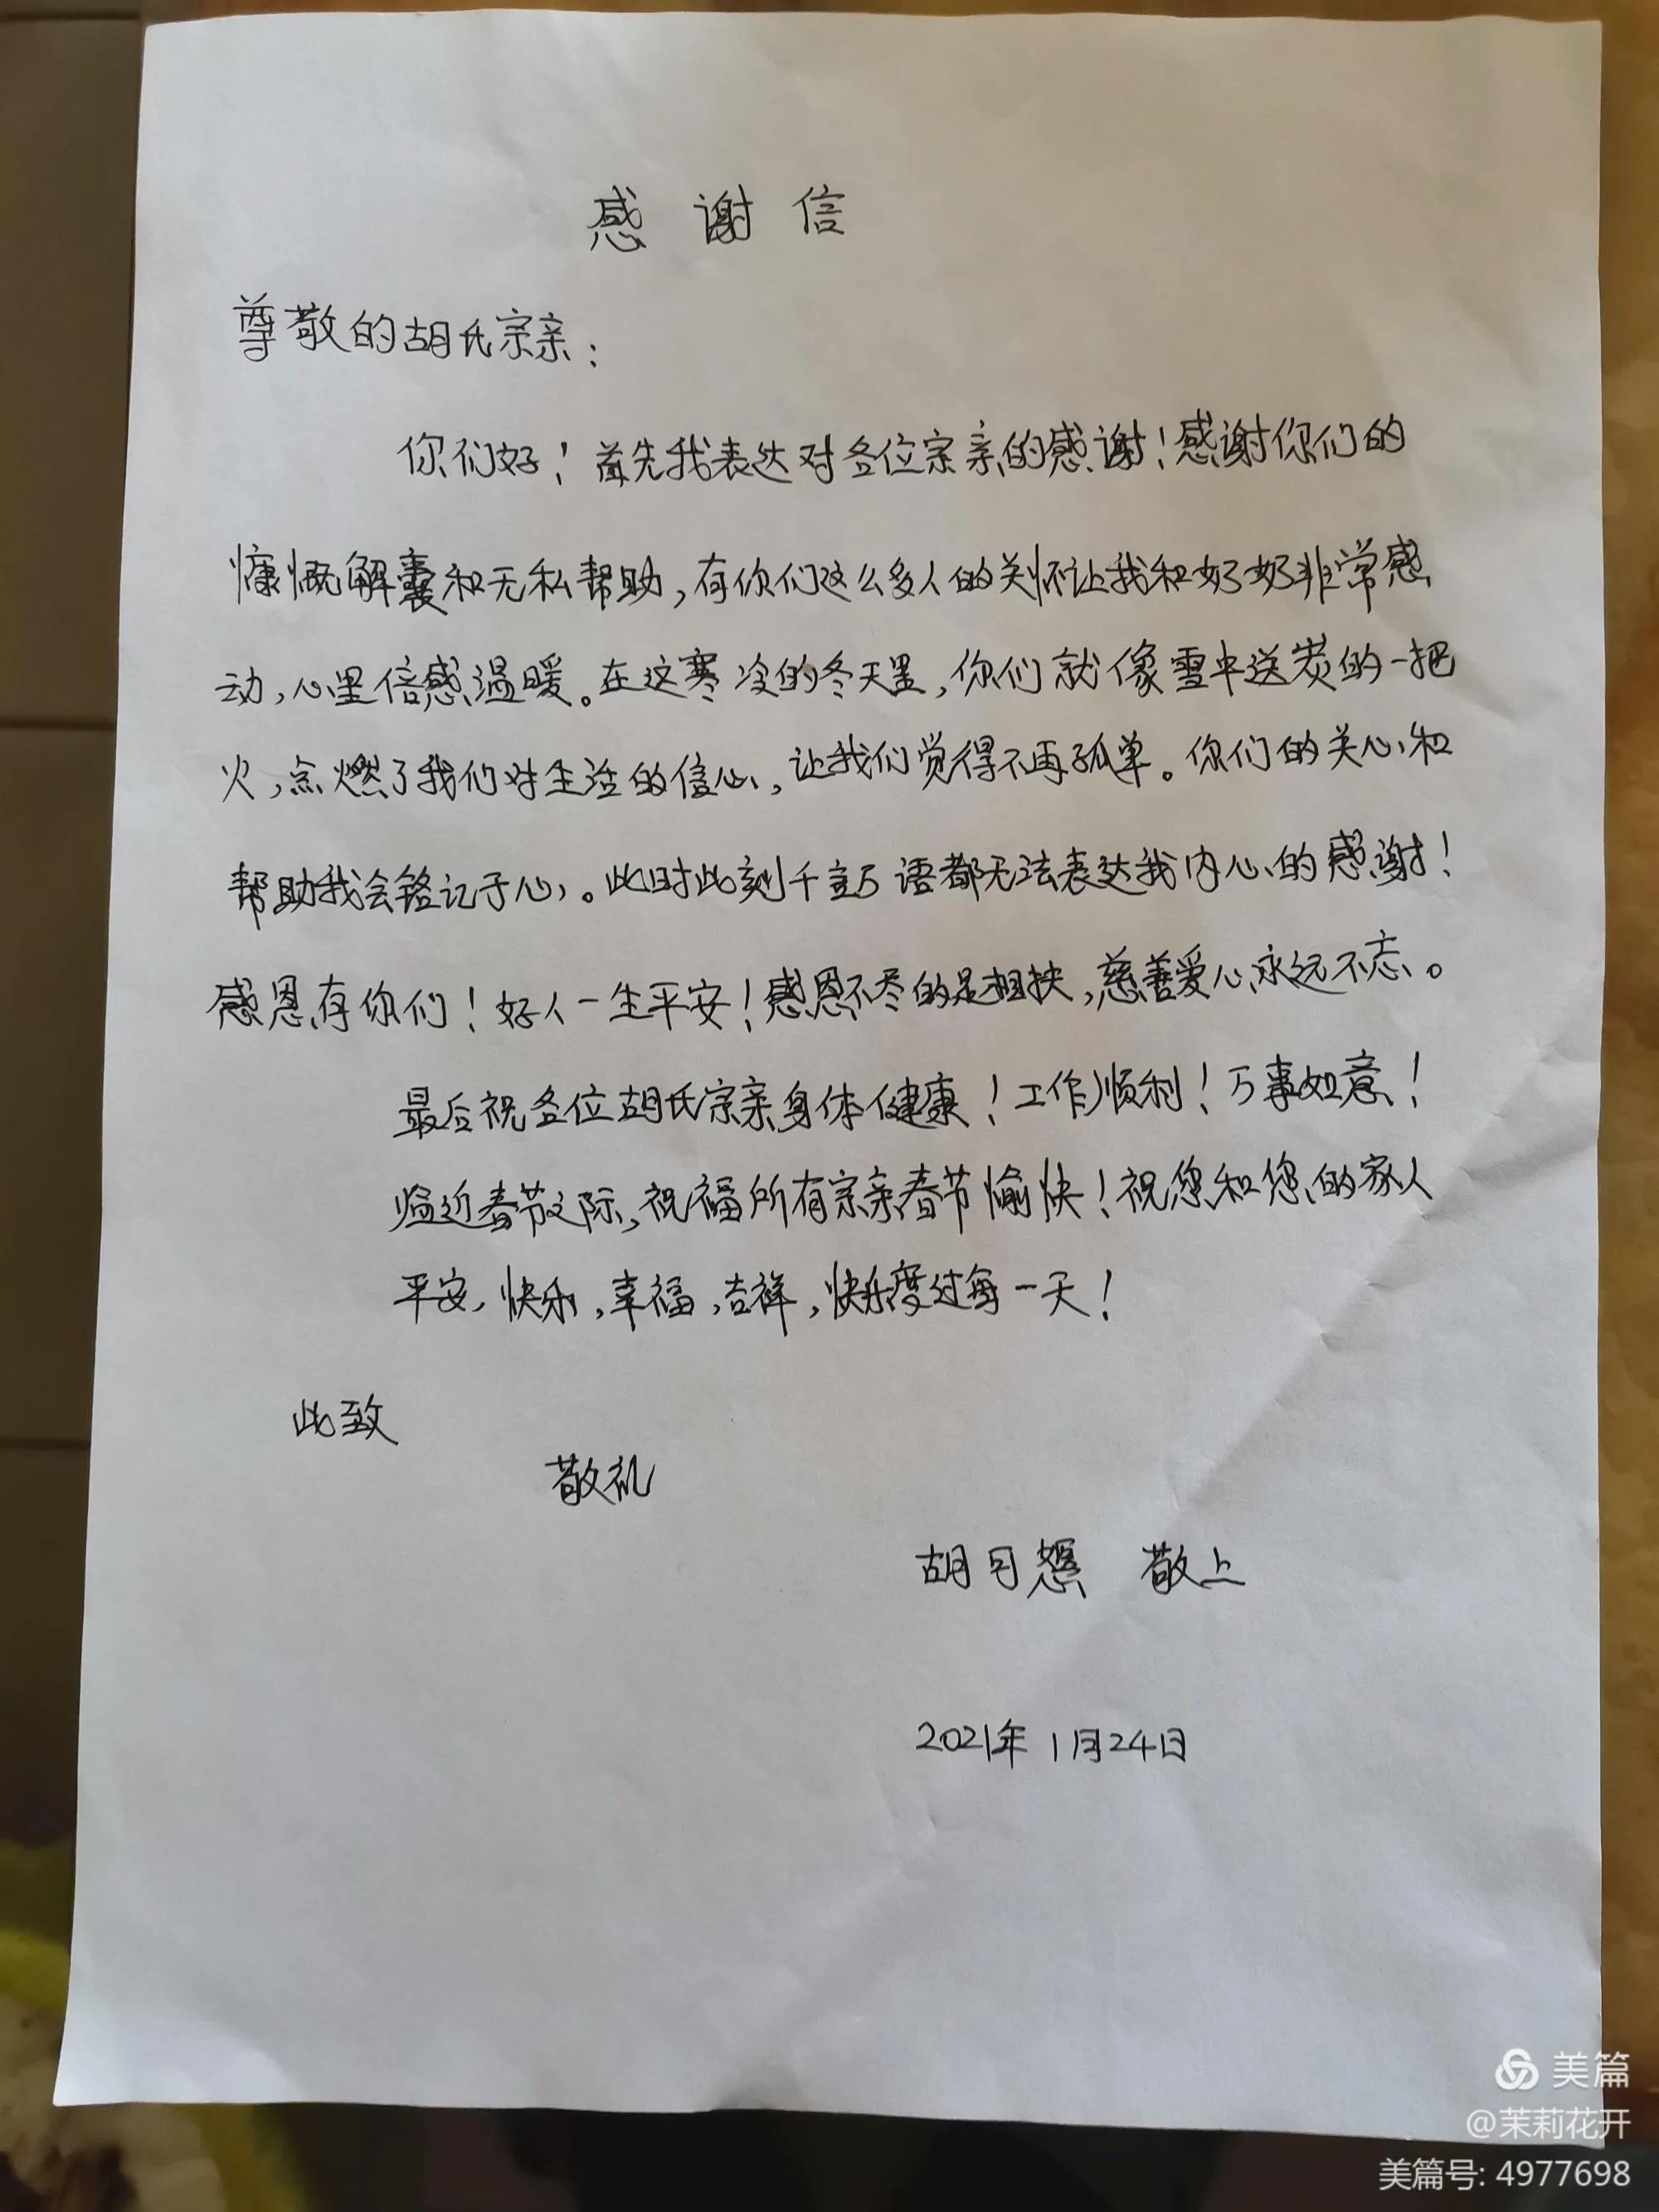 感谢信
尊敬的胡氏宗亲:
你们好!首先我表达对各位宗亲的感谢!感谢你们的
慷慨解囊和无私帮助,有你们这么多人的关怀让我和奶奶非常感
动,心里倍感温暖。在这寒冷的冬天里,你们就像雪中送炭的一把
火,点燃了我们对生活的信心,让我们觉得不再孤单。你们的关心和
帮助我会铭记于心。此时此刻千言万语都无法表达我内心的感谢!
感恩有你们!好人一生平安!感恩不尽的是相扶,慈善爱心永远不忘。
最后祝各位胡氏宗亲身体健康!工作顺利!万事如意!
临近春节之际,祝福所有宗亲春节愉快!祝您和您的家人
平安,快乐,幸福,吉祥,快乐度过每一天!
此致
敬礼
胡月 敬上
2021年1月24日
美篇
@茉莉花开
美篇号: 4977698